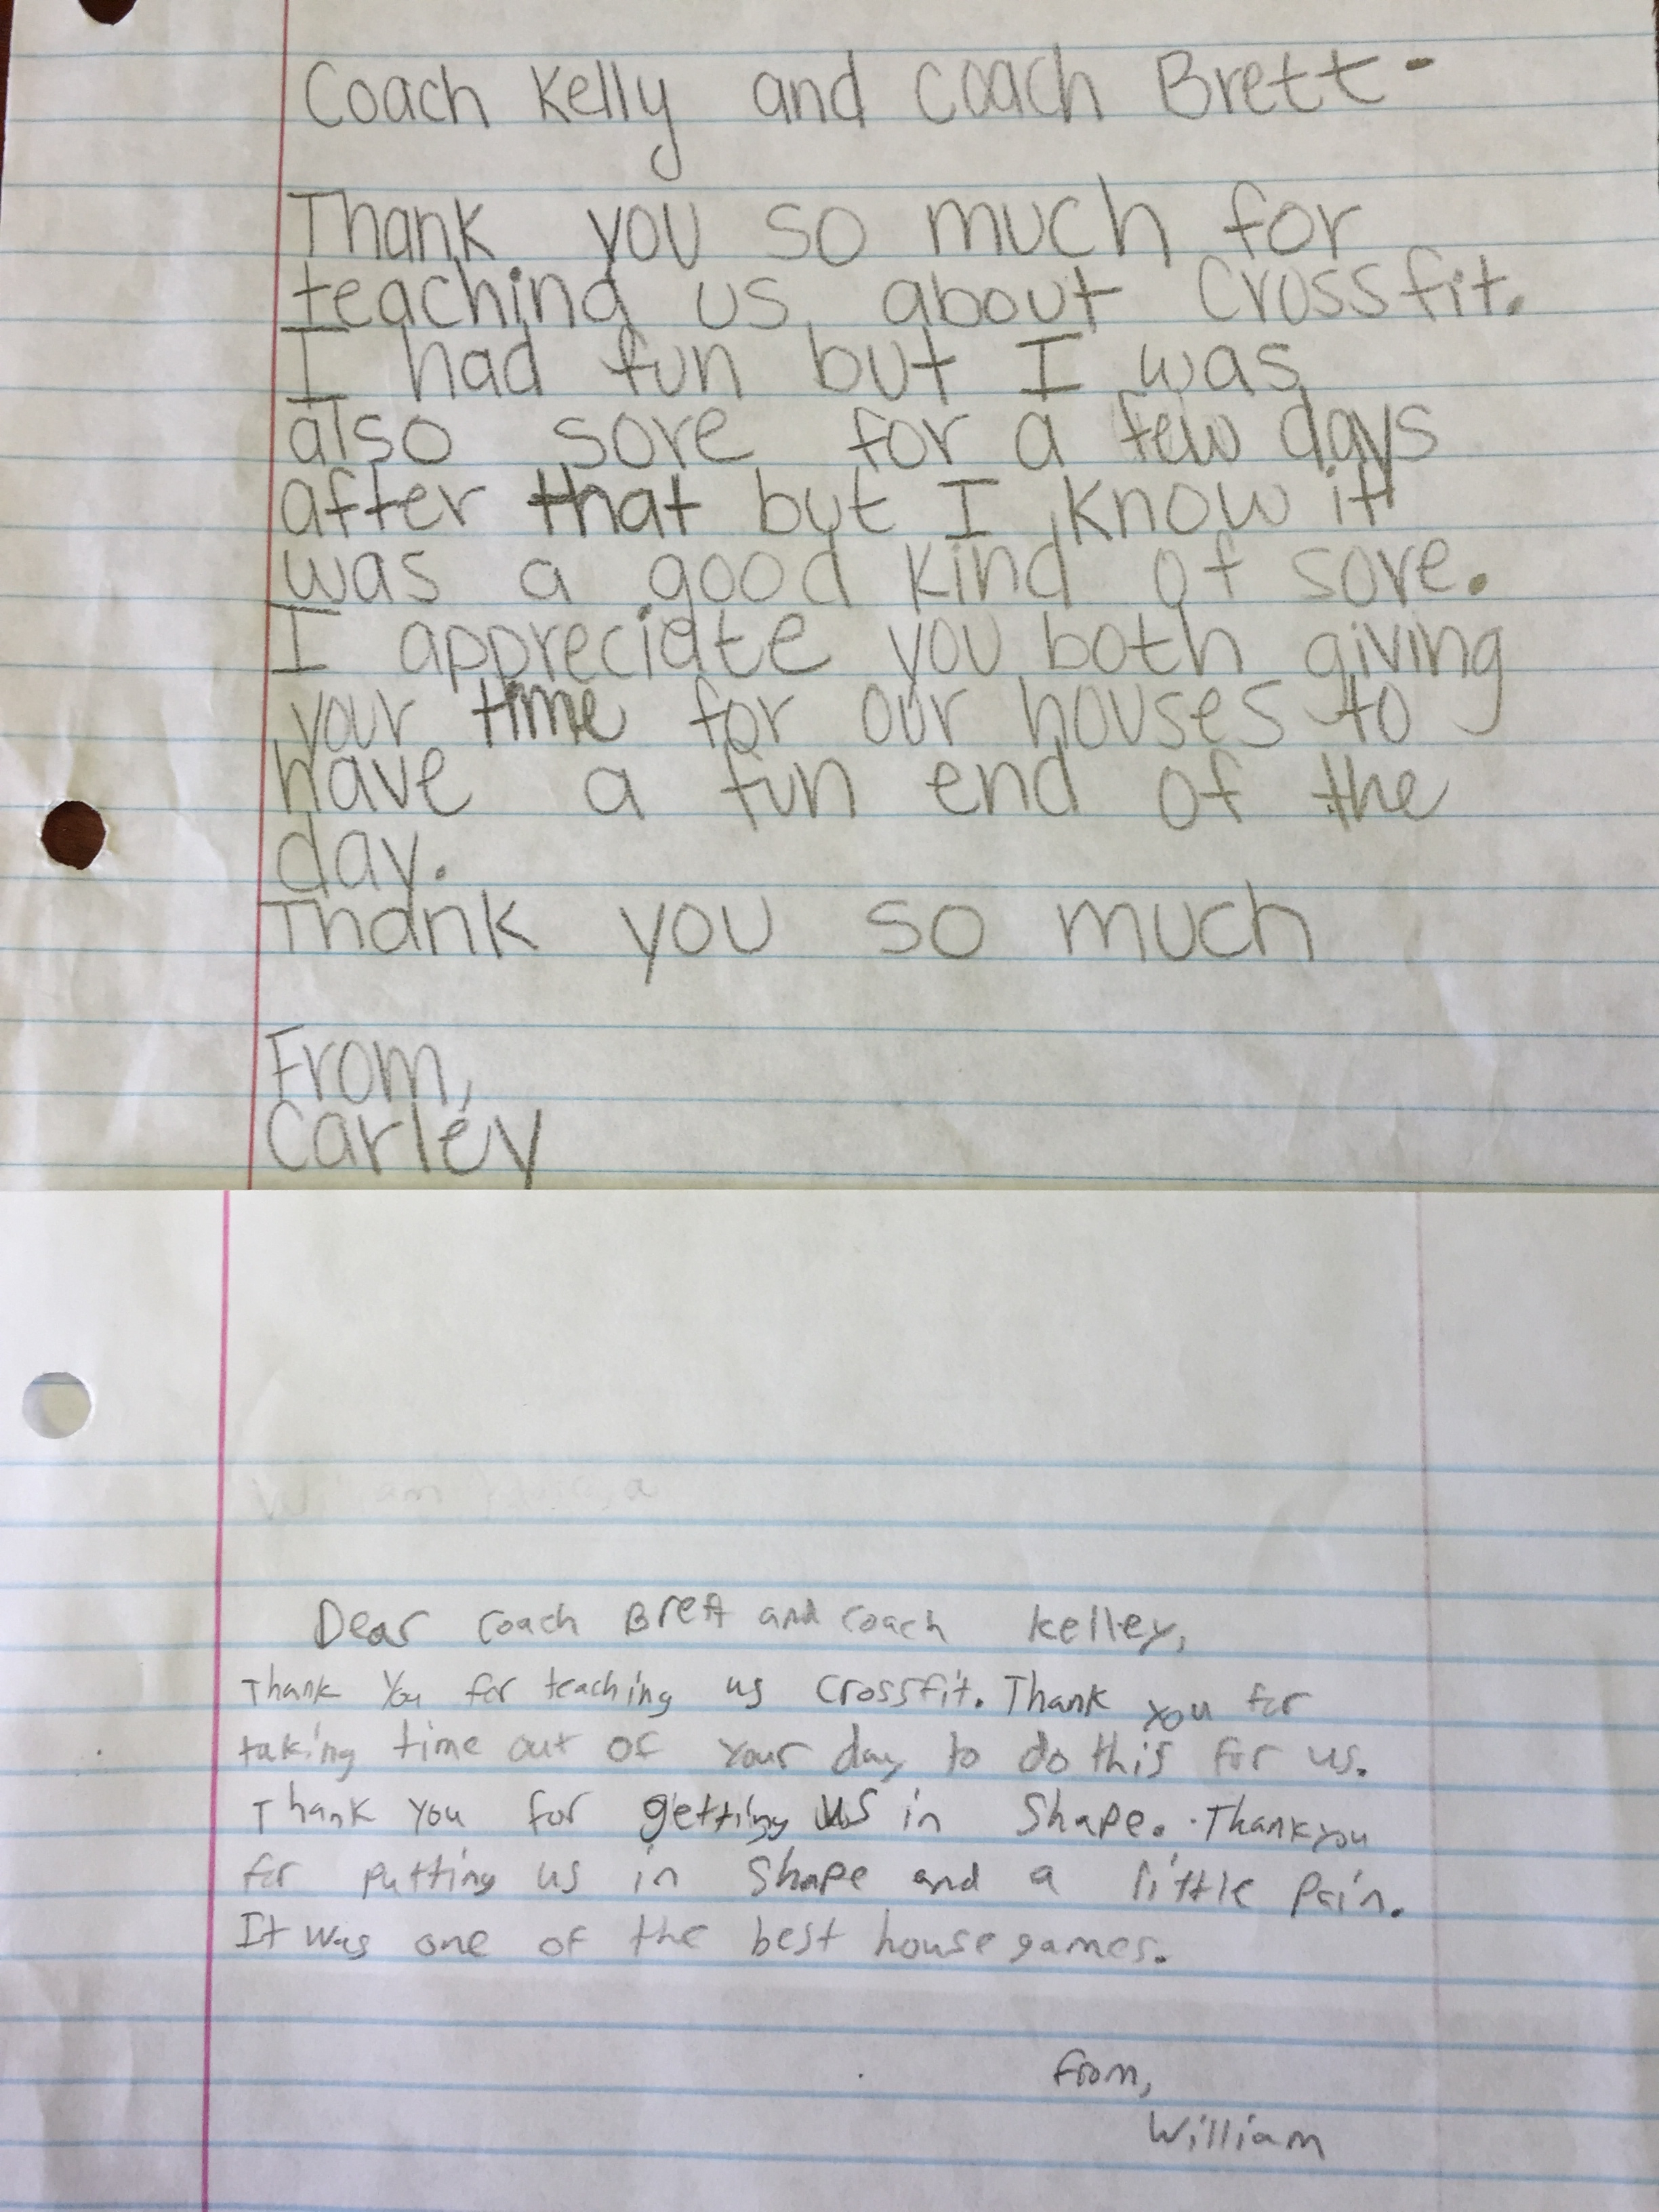 Coach Kelly and Coach Brett-
Thank you so much for
teaching us about Crossfit.
I had fun but I was
also sore for a few days
after that but I know it
was a good kind of sore.
I appreciate you both giving
your time for our houses to
have a fun end of the
day.
Thank you so much
From,
Carley
Dear Coach Brett and Coach Kelley,
Thank You for teaching us Crossfit. Thank you for
taking time out of your day to do this for us.
Thank you for getting us in Shape. Thank you
for putting us in Shape and a little Pain.
It was one of the best house games.
From,
William